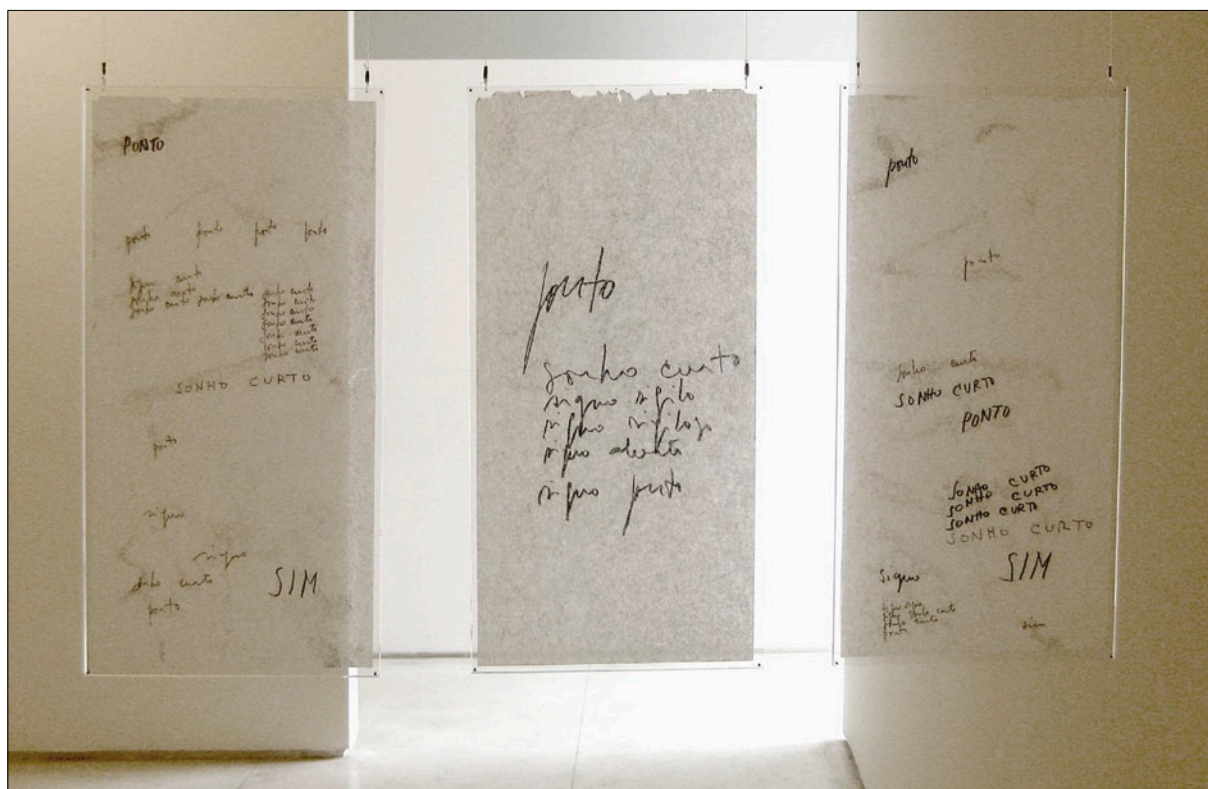 PONTO
ponto ponto ponto ponto
signo curto
sonho curto
sonho curto sonho curto sonho curto
sonho curto
sonho curto
sonho curto
sonho curto
sonho curto
sonho curto
SONHO CURTO
ponto
signo
signo
sonho curto
ponto
SIM
ponto
sonho curto
signo sigilo
signo
signo
signo ponto
ponto
ponto
sonho curto
SONHO CURTO
PONTO
SONHO CURTO
SONHO CURTO
SONHO CURTO
SONHO CURTO
SIM
Signo
sim